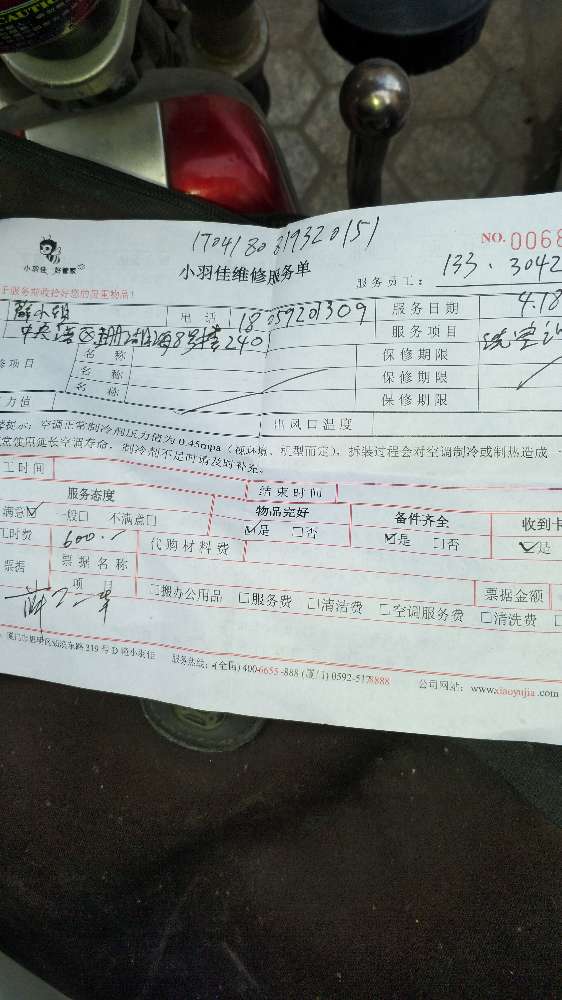 CAUTION
170418080319320151
NO.0068
小羽佳 好管家
小羽佳维修服务单
服务员工： 133、3042
电话 18059201309 服务日期 4.18
240 服务项目 洗空调
名 称 保修期限
修项目 名 称 保修期限
名 称 保修期限
力值 出风口温度
提示：空调正常制冷剂压力值为0.45mpa（视环境、机型而定），拆装过程会对空调制冷或制热造成一
常使用延长空调寿命，制冷剂不足时请及时补充。
工时间 结束时间
服务态度 物品完好 备件齐全 收到卡
满意☑ 一般□ 不满意□ ☑是 □否 ☑是 □否 ☑是
工时费 600.- 代购材料费
票据 票据名称 票据金额
项 目 □搬办公用品 □服务费 □清洁费 □空调服务费 □清洗费
东路219号D 小羽佳 服务热线：(全国) 400-6655-888 (厦门) 0592-5178888 公司网站：www.xiaoyujia.com